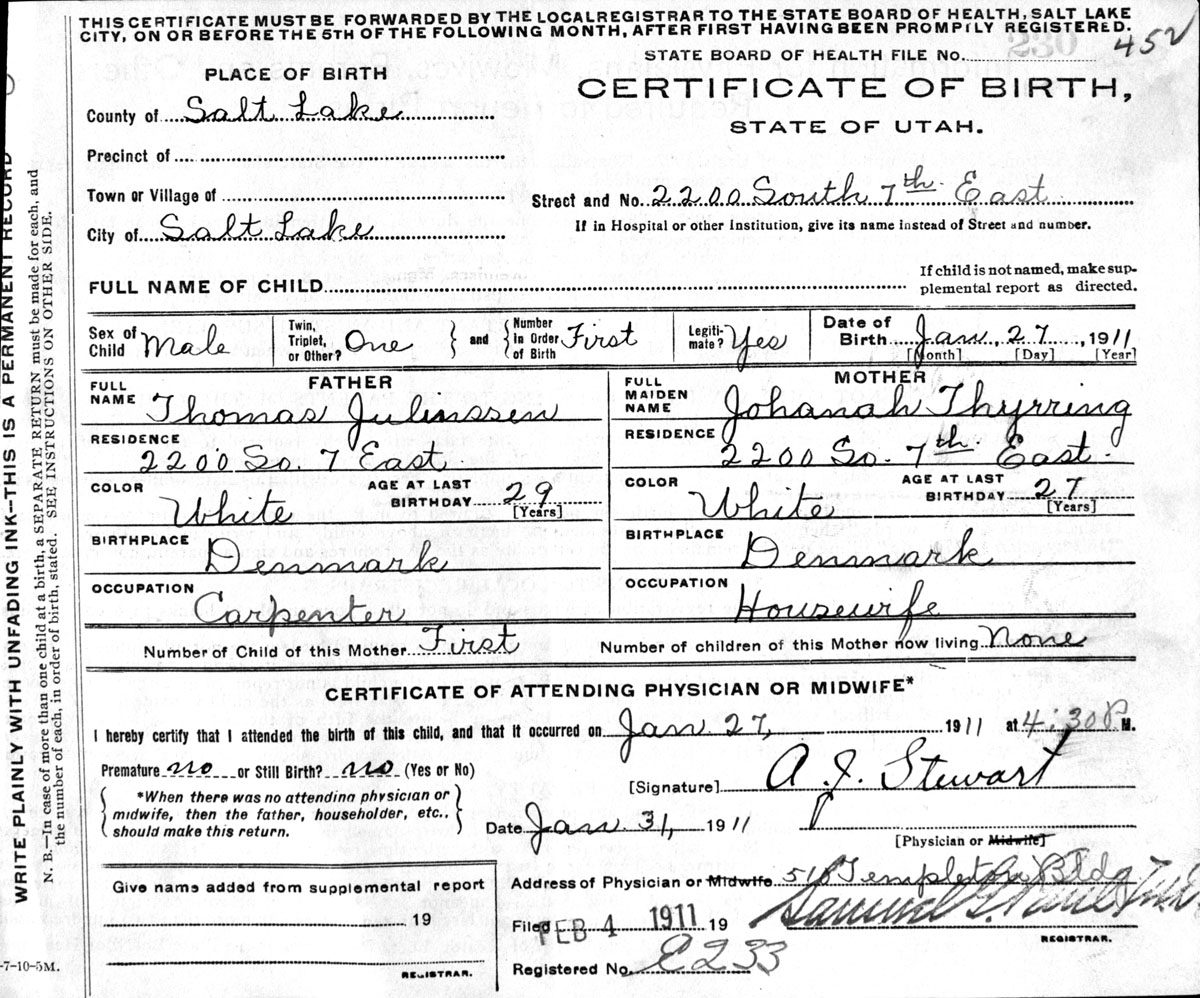 THIS CERTIFICATE MUST BE FORWARDED BY THE LOCAL REGISTRAR TO THE STATE BOARD OF HEALTH, SALT LAKE
CITY, ON OR BEFORE THE 5TH OF THE FOLLOWING MONTH, AFTER FIRST HAVING BEEN PROMPTLY REGISTERED.
STATE BOARD OF HEALTH FILE No. 452
230
PLACE OF BIRTH
CERTIFICATE OF BIRTH,
STATE OF UTAH.
County of Salt Lake
Precinct of
Town or Village of
Street and No. 2200 South 7th East
City of Salt Lake
If in Hospital or other Institution, give its name instead of Street and number.
FULL NAME OF CHILD
If child is not named, make sup-
plemental report as directed.
Sex of Child Male
Twin, Triplet, or Other? One
and
Number in Order of Birth First
Legiti-mate? Yes
Date of Birth Jan, 27, 1911
[Month] [Day] [Year]
FATHER
FULL NAME Thomas Juliussen
RESIDENCE 2200 So. 7 East
COLOR White
AGE AT LAST BIRTHDAY 29 [Years]
BIRTHPLACE Denmark
OCCUPATION Carpenter
MOTHER
FULL MAIDEN NAME Johanah Thyrring
RESIDENCE 2200 So. 7th East
COLOR White
AGE AT LAST BIRTHDAY 27 [Years]
BIRTHPLACE Denmark
OCCUPATION Housewife
Number of Child of this Mother First
Number of children of this Mother now living None
CERTIFICATE OF ATTENDING PHYSICIAN OR MIDWIFE*
I hereby certify that I attended the birth of this child, and that it occurred on Jan. 27, 1911 at 4:30 P M.
Premature no or Still Birth? no (Yes or No)
[Signature] A. J. Stewart
*When there was no attending physician or
midwife, then the father, householder, etc.,
should make this return.
Date Jan. 31, 1911
[Physician or Midwife]
Give name added from supplemental report
19
REGISTRAR.
Address of Physician or Midwife Templeton Bldg
Filed FEB 4 1911 19
Samuel
REGISTRAR.
Registered No. E233
-7-10-5M.
WRITE PLAINLY WITH UNFADING INK--THIS IS A PERMANENT RECORD
N. B.--In case of more than one child at a birth, a SEPARATE RETURN must be made for each, and
the number of each, in order of birth, stated. SEE INSTRUCTIONS ON OTHER SIDE.